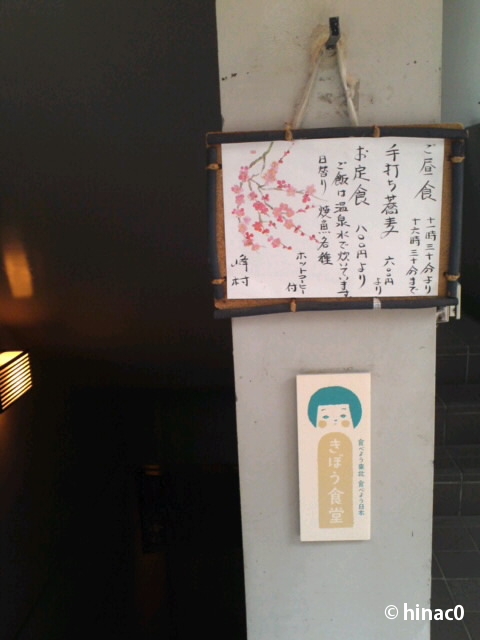 ご昼食
十一時三十分より
十六時三十分まで
手打ち蕎麦 六〇〇円より
お定食 八〇〇円より
ご飯は温泉水で炊いています
日替り 焼魚各種
ホットコーヒー付
峰村
きぼう食堂
食べよう東北 食べよう日本
© hinac0